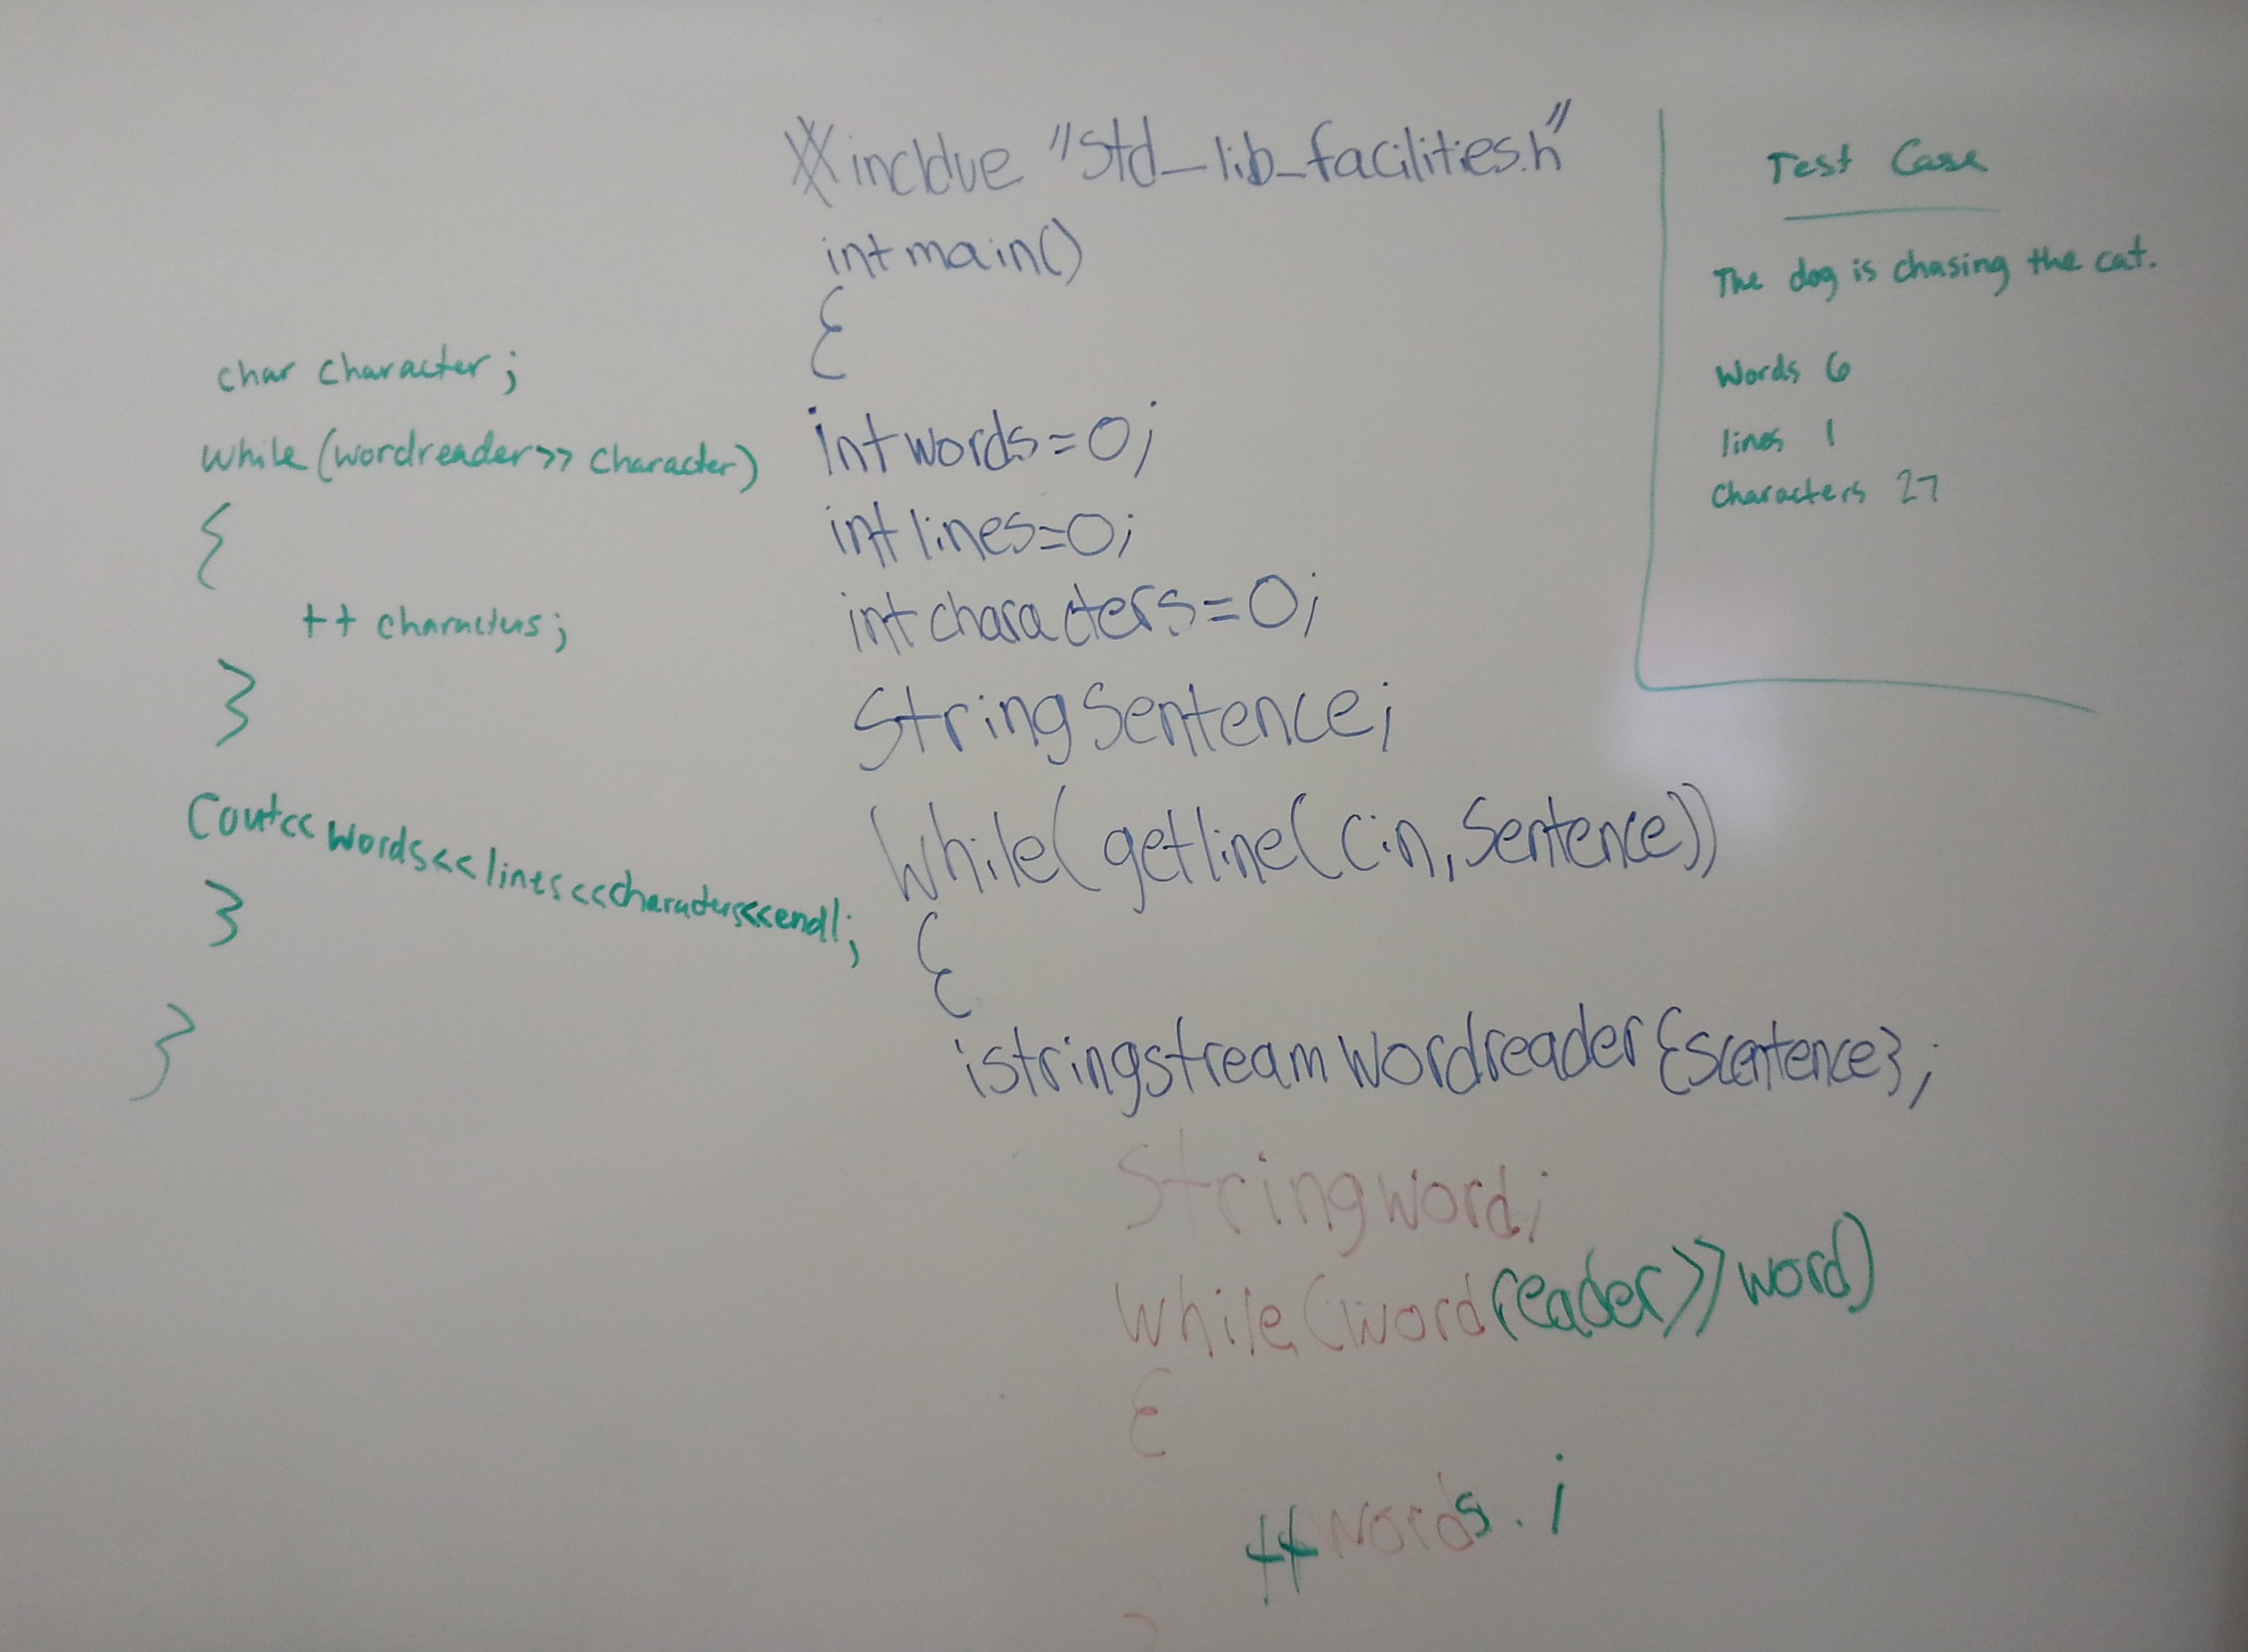 #incldue "std_lib_facilities.h"
int main()
{
int words=0;
int lines=0;
int characters=0;
String Sentence;
While(getline(cin, Sentence))
{
istringstream wordreader{Scentence};
String word;
While(wordreader>>word)
{
++words.;
}
char character;
while(wordreader>> character)
{
++ characters;
}
Cout<<words<<lines<<characters<<endl;
}
}
Test Case
The dog is chasing the cat.
Words 6
lines 1
characters 27